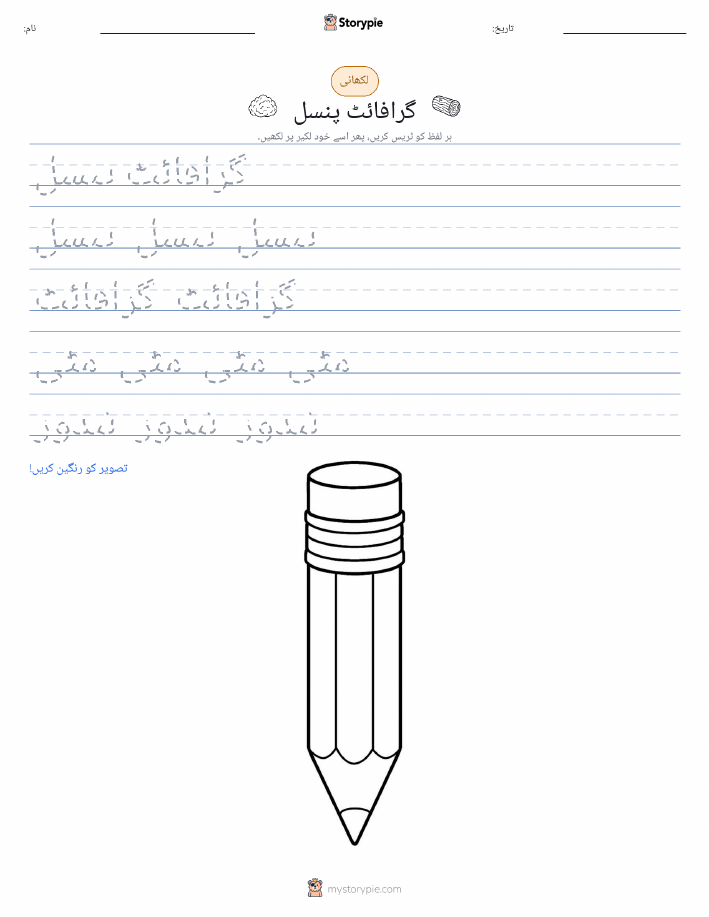 نام:
Storypie
تاریخ:
لکھائی
گرافائٹ پنسل
ہر لفظ کو ٹریس کریں، پھر اسے خود لکیر پر لکھیں۔
گرافائٹ پنسل
پنسل پنسل پنسل
گرافائٹ گرافائٹ
مٹی مٹی مٹی مٹی
تصویر کو رنگین کریں!
mystorypie.com